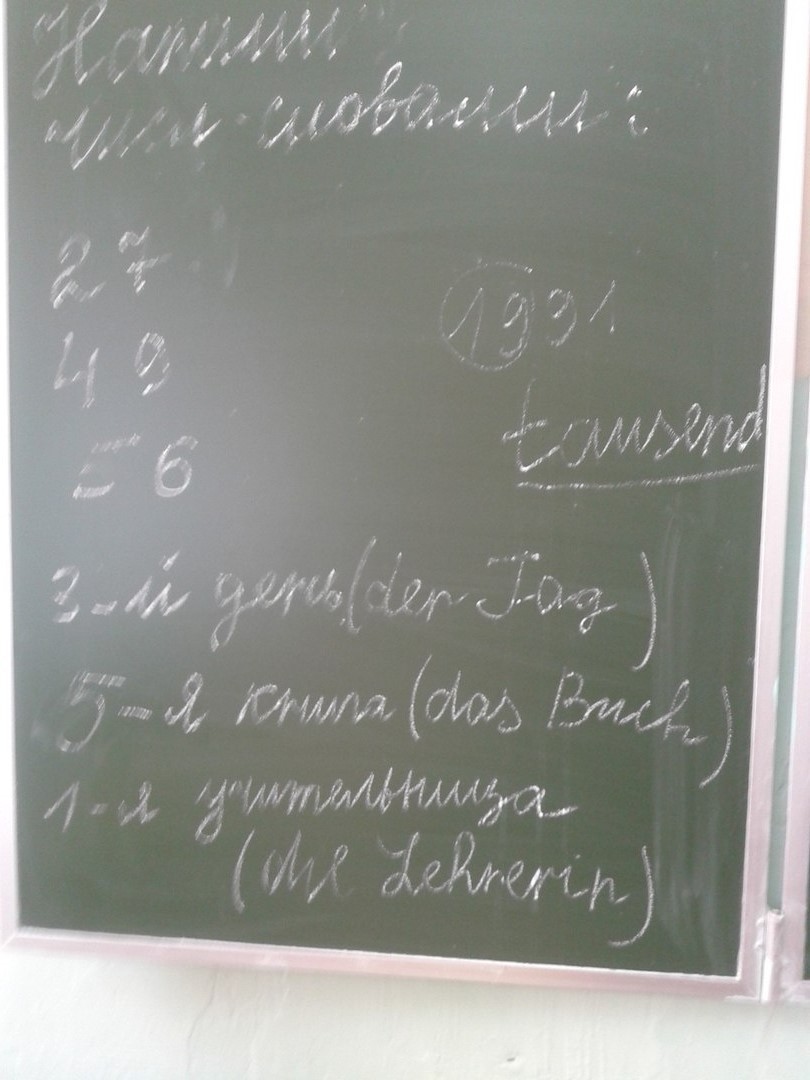 Напиши
числ. словами:
27
49
56
1991
tausend
3-й день (der Tag)
5-я книга (das Buch)
1-я учительница
(die Lehrerin)